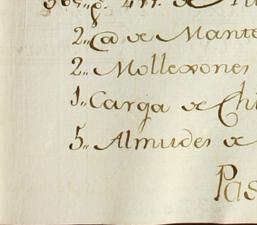 2,, @ de Mante
2,, Mollexones
1,, Carga de Chi
5,, Almudes de
Pas